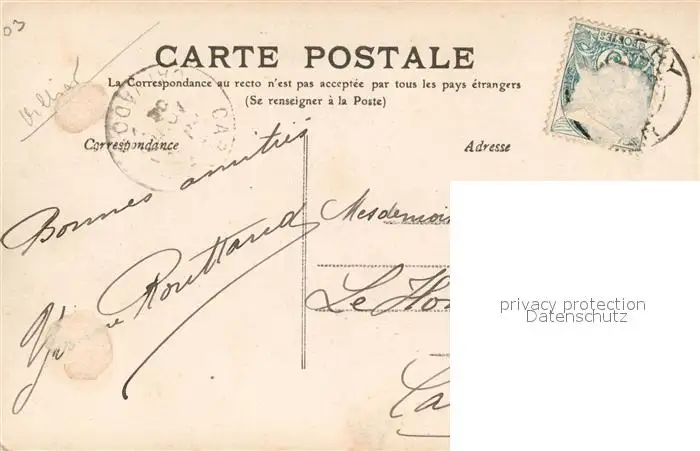 03
CARTE POSTALE
La Correspondance au recto n'est pas acceptée par tous les pays étrangers
(Se renseigner à la Poste)
Correspondance
Adresse
Bonnes amitiés
Routtand
Mesdemois
Le Hon
Ca
privacy protection
Datenschutz